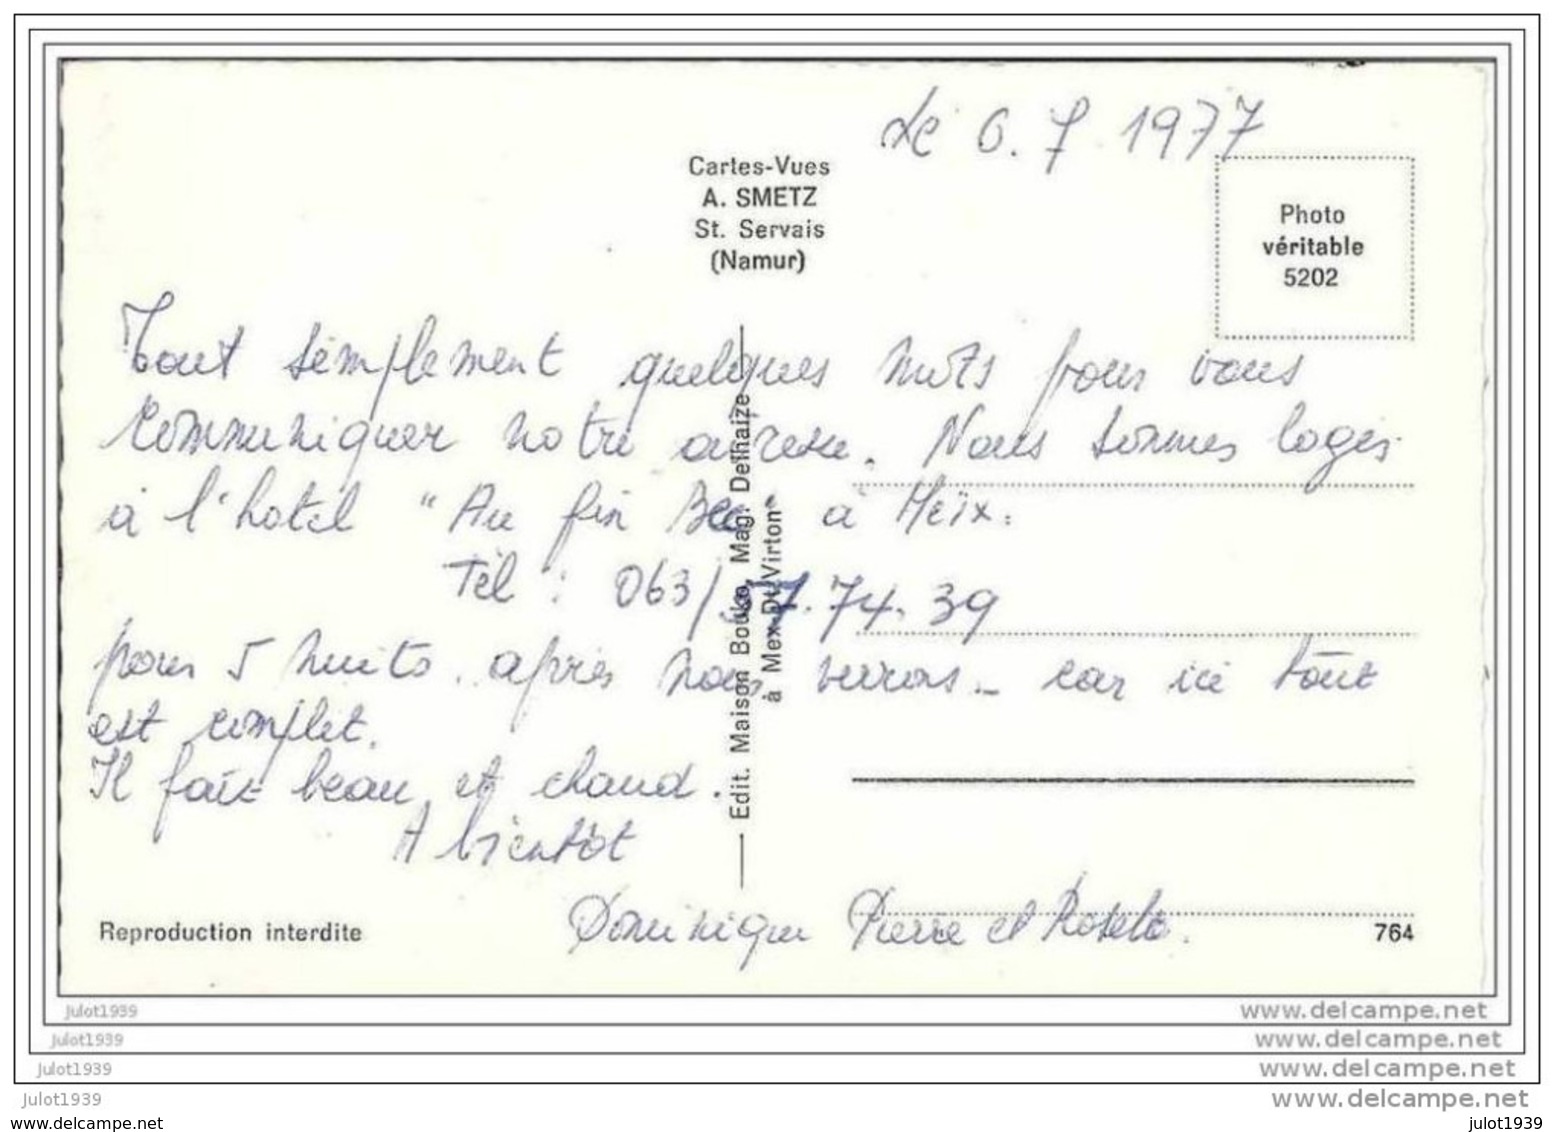 Le 6.7.1977
Cartes-Vues
A. SMETZ
St. Servais
(Namur)
Photo
véritable
5202
Tout simplement quelques mots pour vous
communiquer notre adresse. Nous sommes logés
à l'hotel "Au fin Bec" à Meix.
Tél : 063/57.74.39
pour 5 nuits. après nous verrons - car ici tout
est complet.
Il fait beau et chaud.
A bientôt
Dominique Pierre et
Edit. Maison Mag. Delhaize
à Mex-Dt-Virton
Reproduction interdite
764
julot1939
www.delcampe.net
julot1939
www.delcampe.net
julot1939
www.delcampe.net
julot1939
www.delcampe.net
www.delcampe.net
julot1939